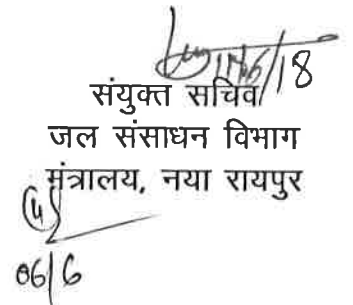 संयुक्त सचिव
जल संसाधन विभाग
मंत्रालय, नया रायपुर
06/6